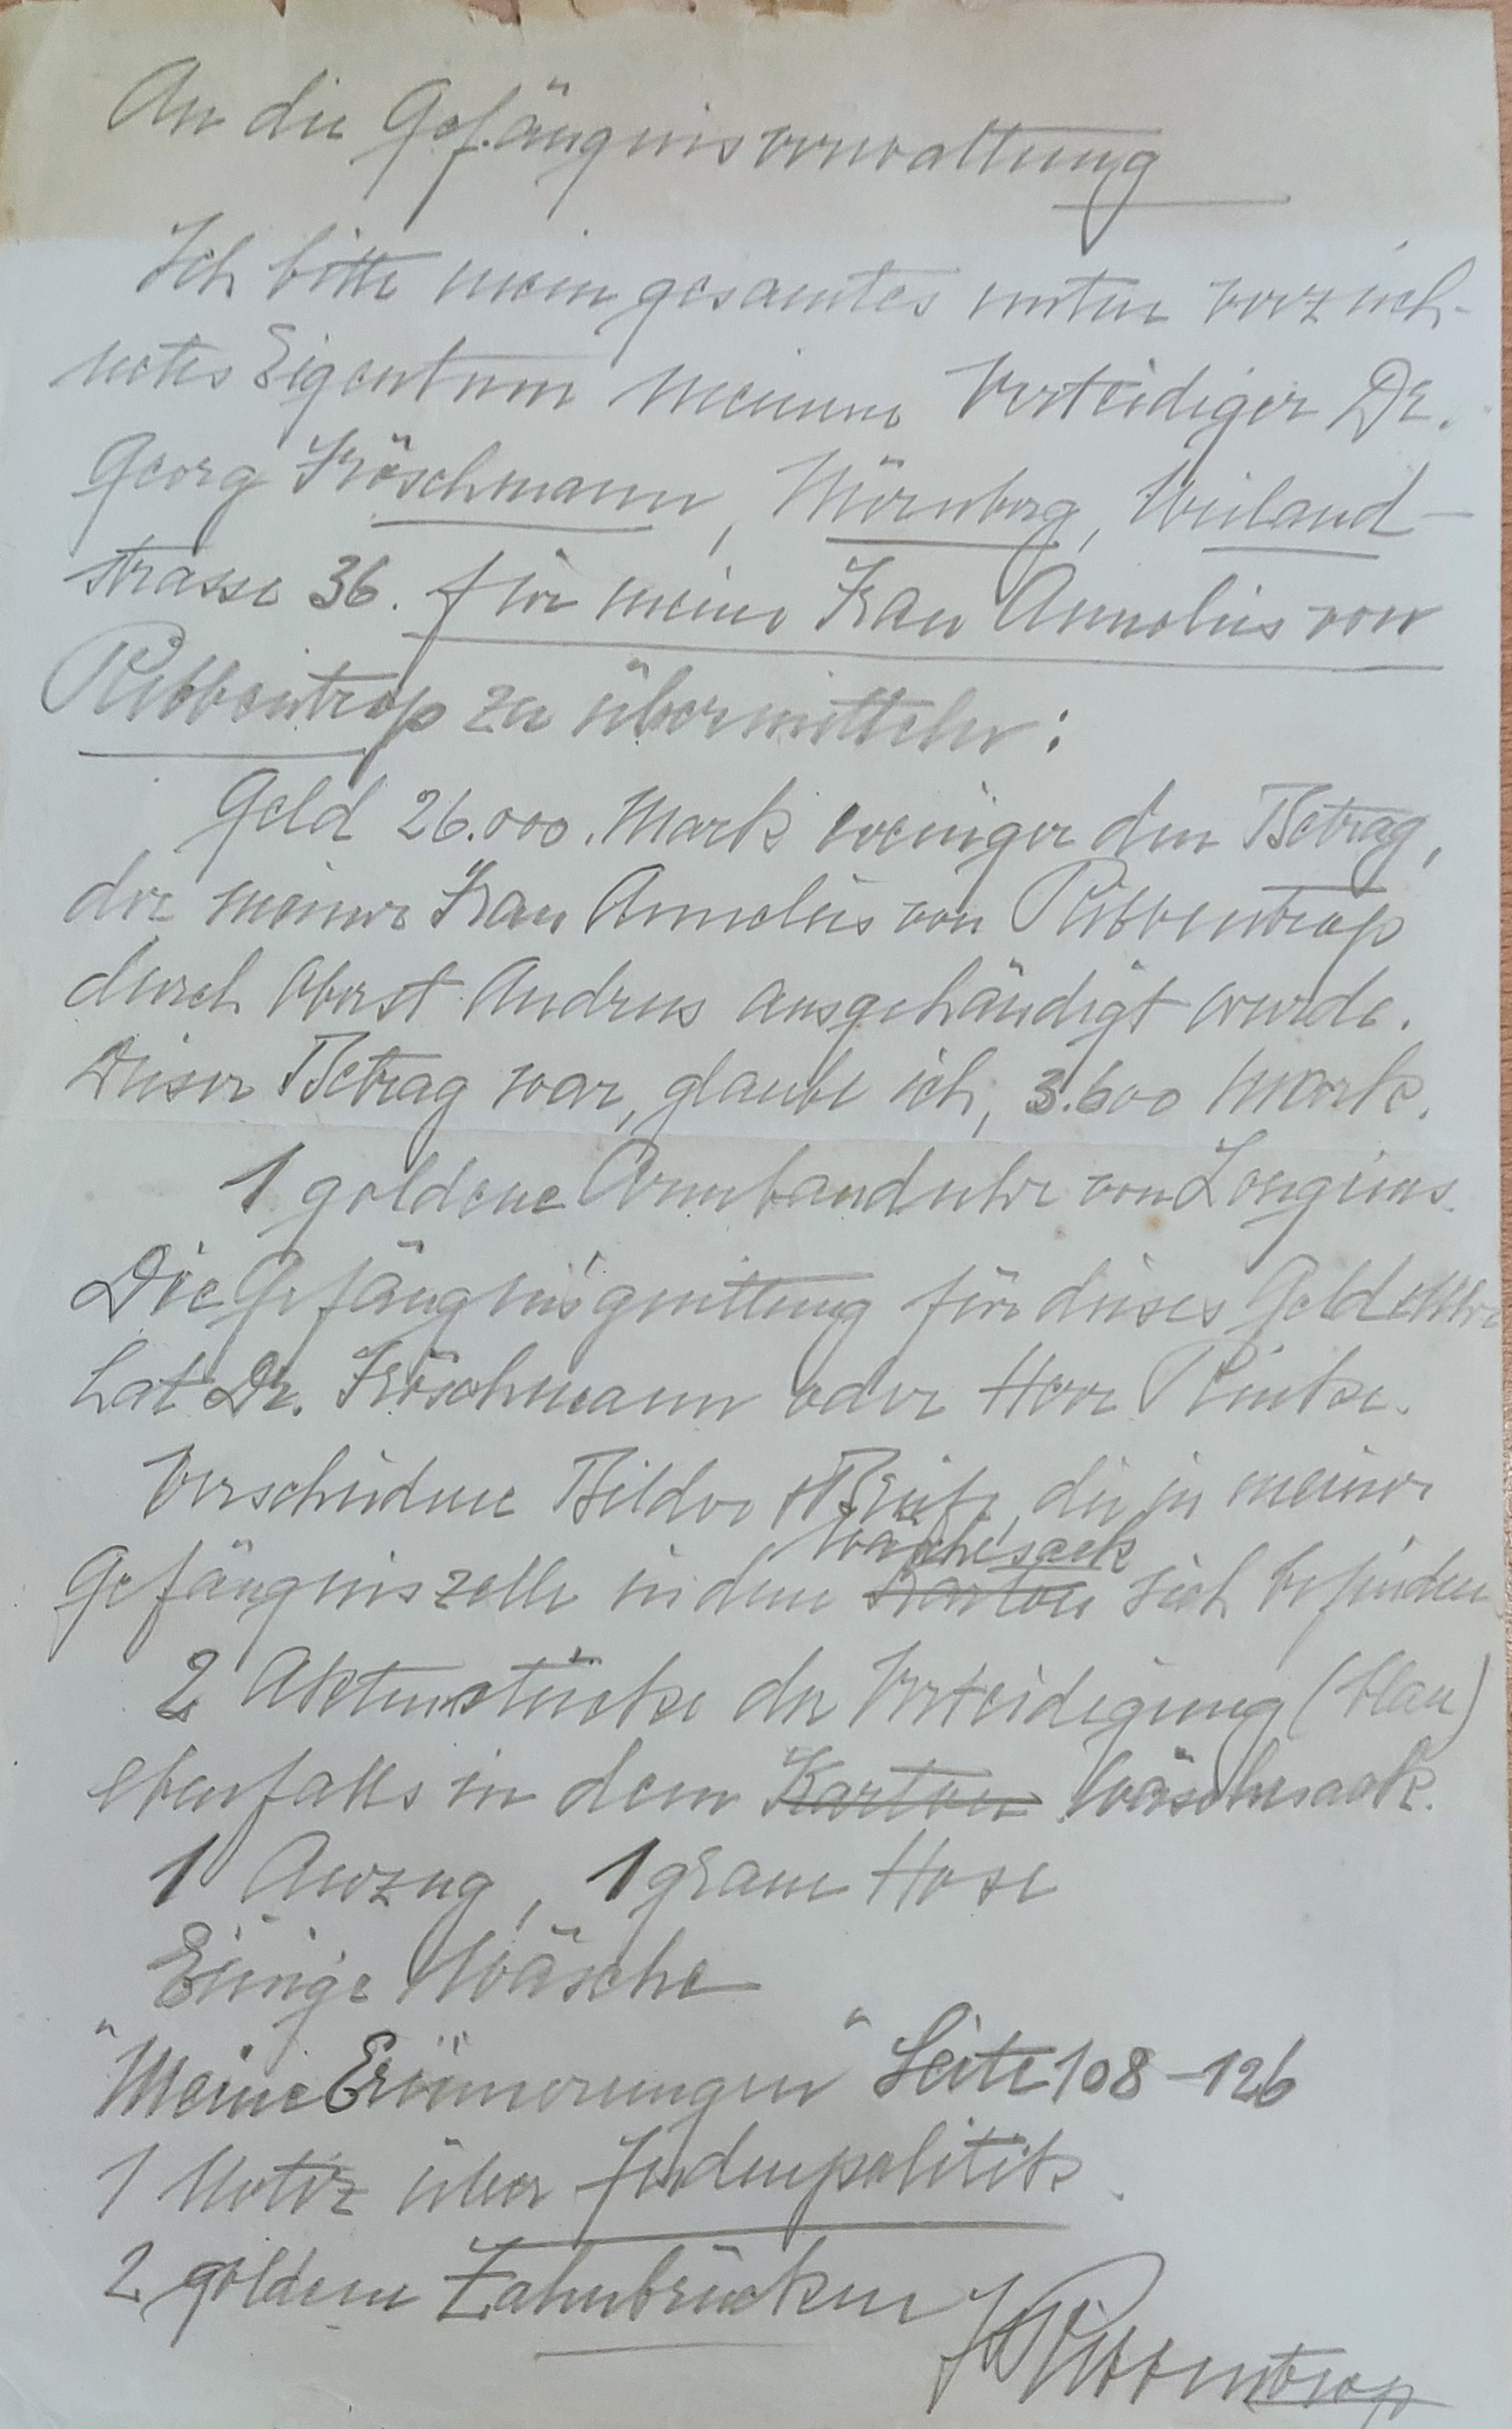 An die Gefängnisverwaltung
Ich bitte mein gesamtes unten verzeich-
netes Eigentum meinem Verteidiger Dr.
Georg Fröschmann, Nürnberg, Wieland-
strasse 36. für meine Frau Annelies von
Ribbentrop zu übermitteln:
Geld 26.000. Mark weniger den Betrag,
der meiner Frau Annelies von Ribbentrop
durch Oberst Andrus ausgehändigt wurde.
Dieser Betrag war, glaube ich, 3.600 Mark.
1 goldene Armbanduhr von Longines.
Die Gefängnisquittung für dieses Geld u Uhr
hat Dr. Fröschmann oder Herr Rintke.
Verschiedene Bilder + Briefe, die in meiner
Wäschesack
Gefängniszelle in dem Karton sich befinden
2 Aktenstücke der Verteidigung (blau)
ebenfalls in dem Karton Wäschesack.
1 Anzug, 1 graue Hose
Einige Wäsche
"Meine Erinnerungen" Seite 108 – 126
1 Notiz über Judenpolitik.
2 goldene Zahnbrücken
JvRibbentrop